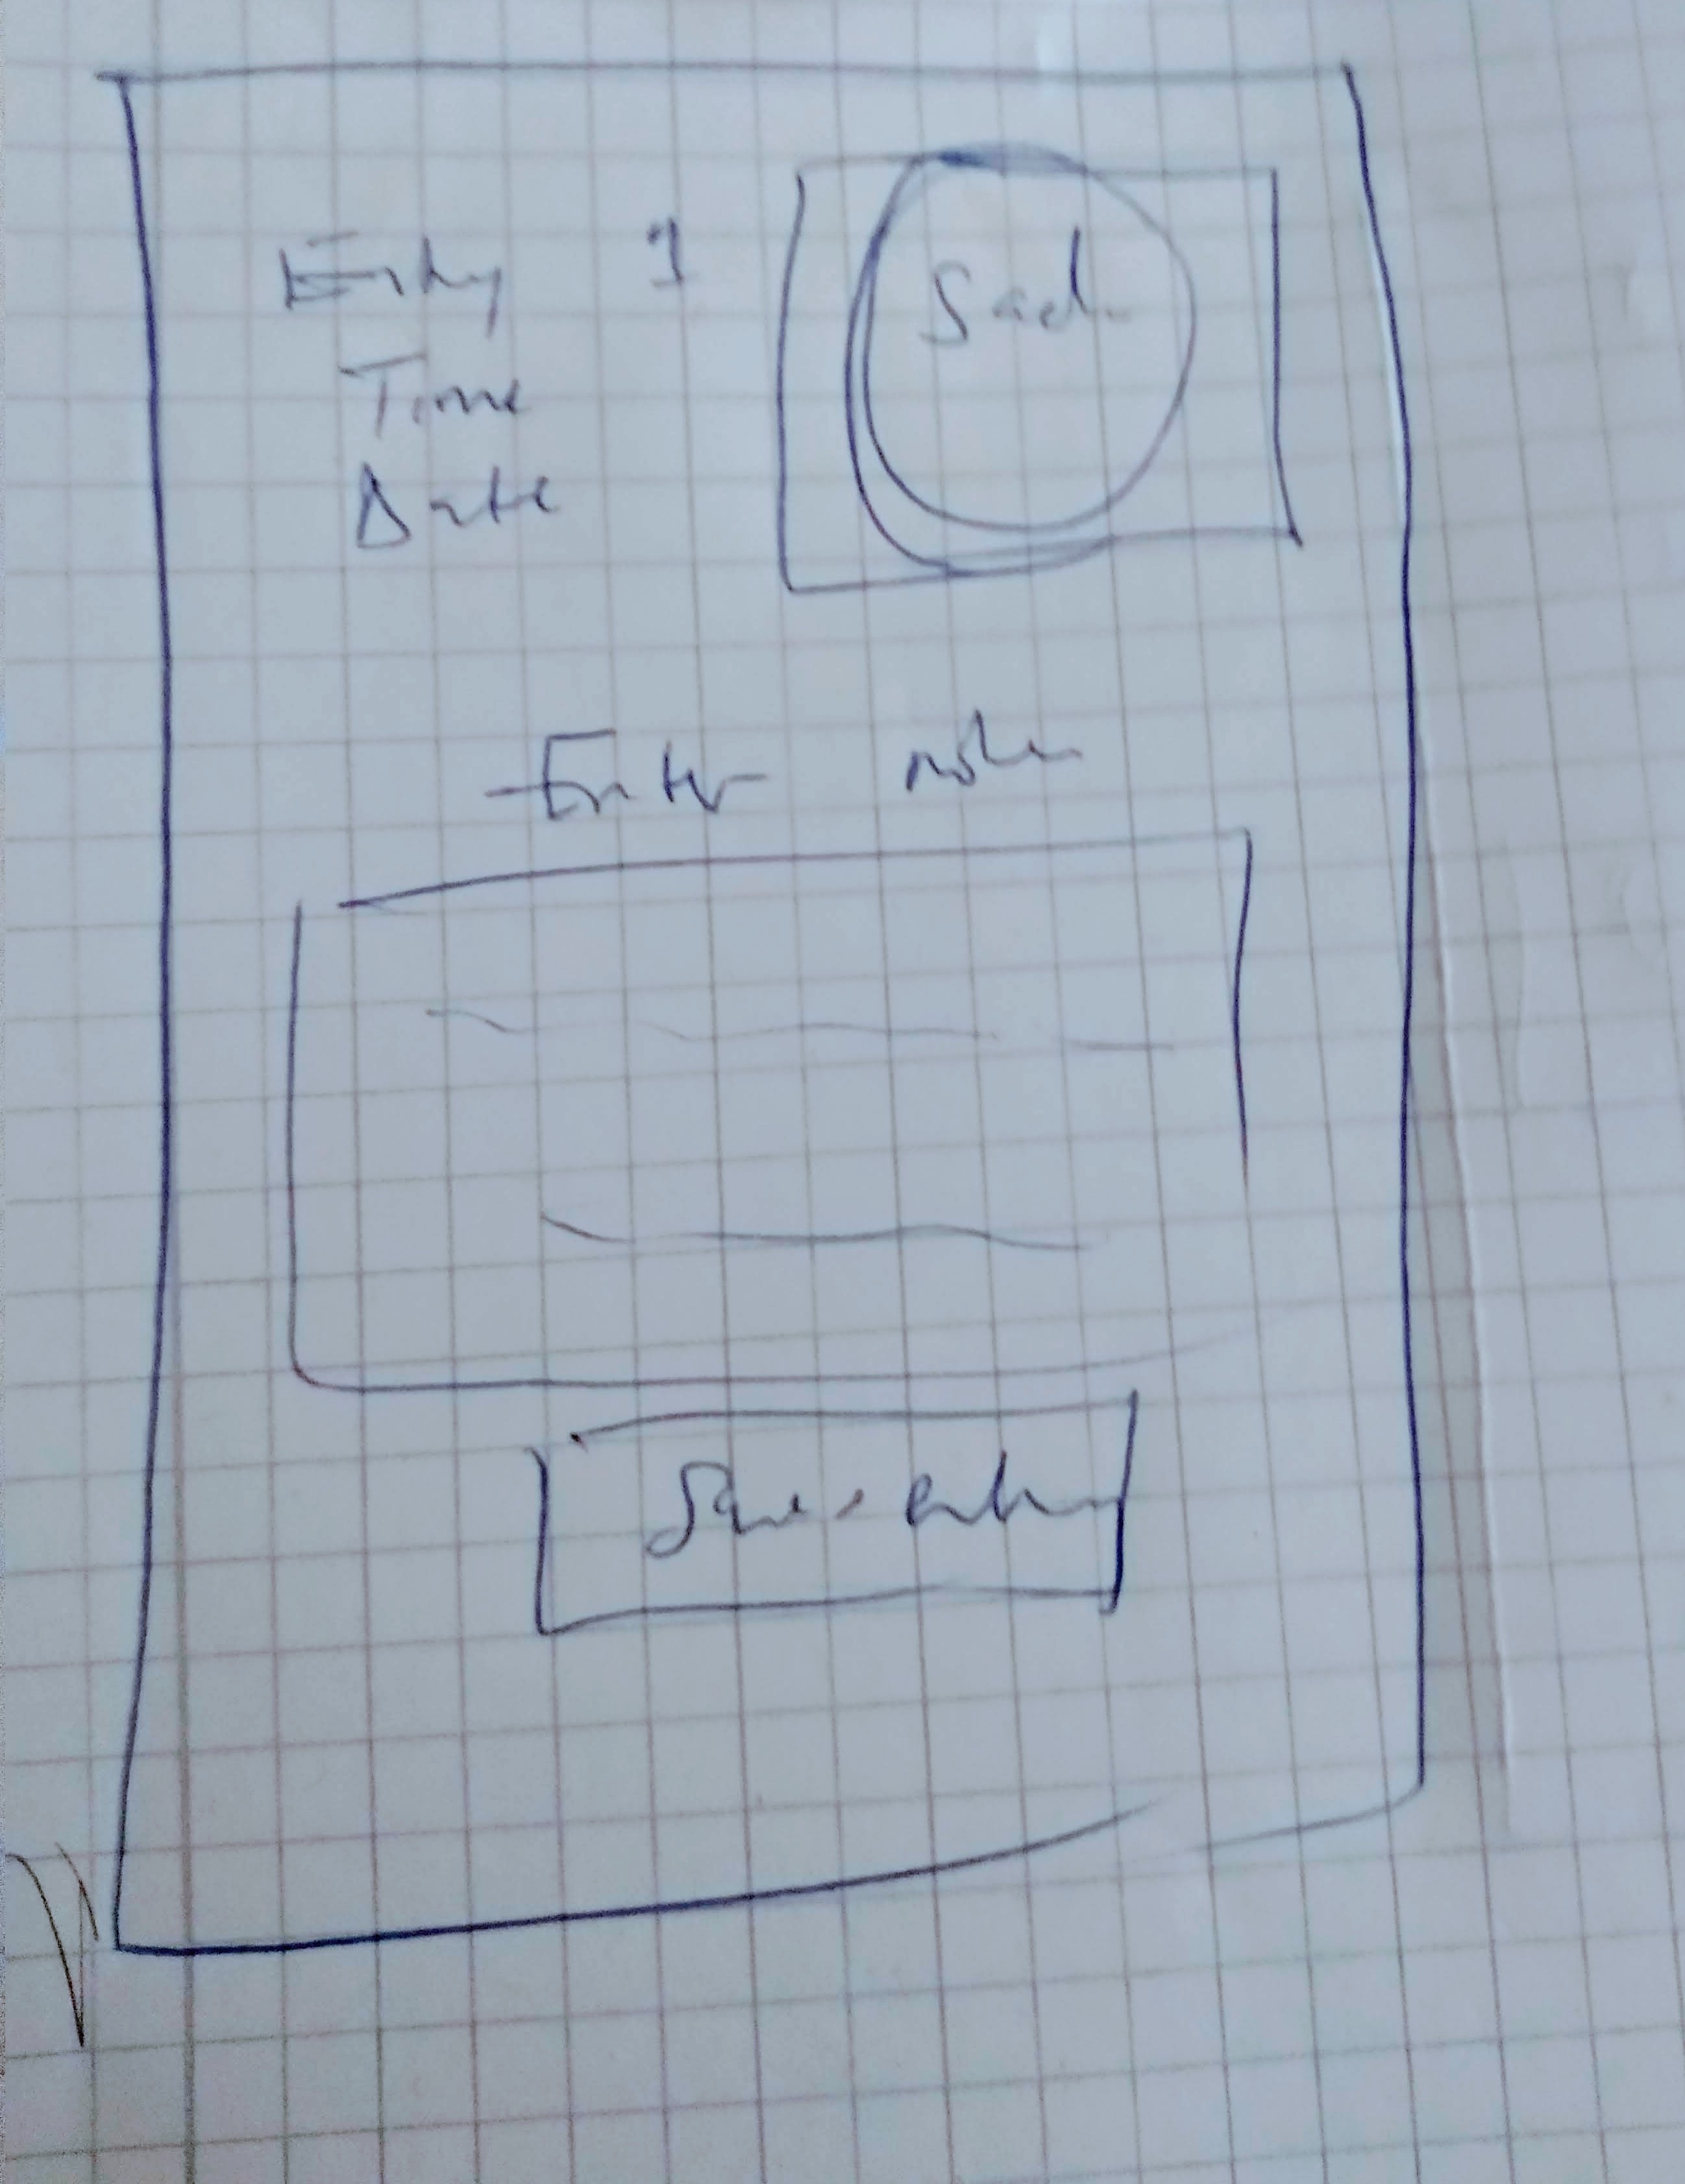 Entry 1
Sad
Time
Date
Enter notes
Save entry